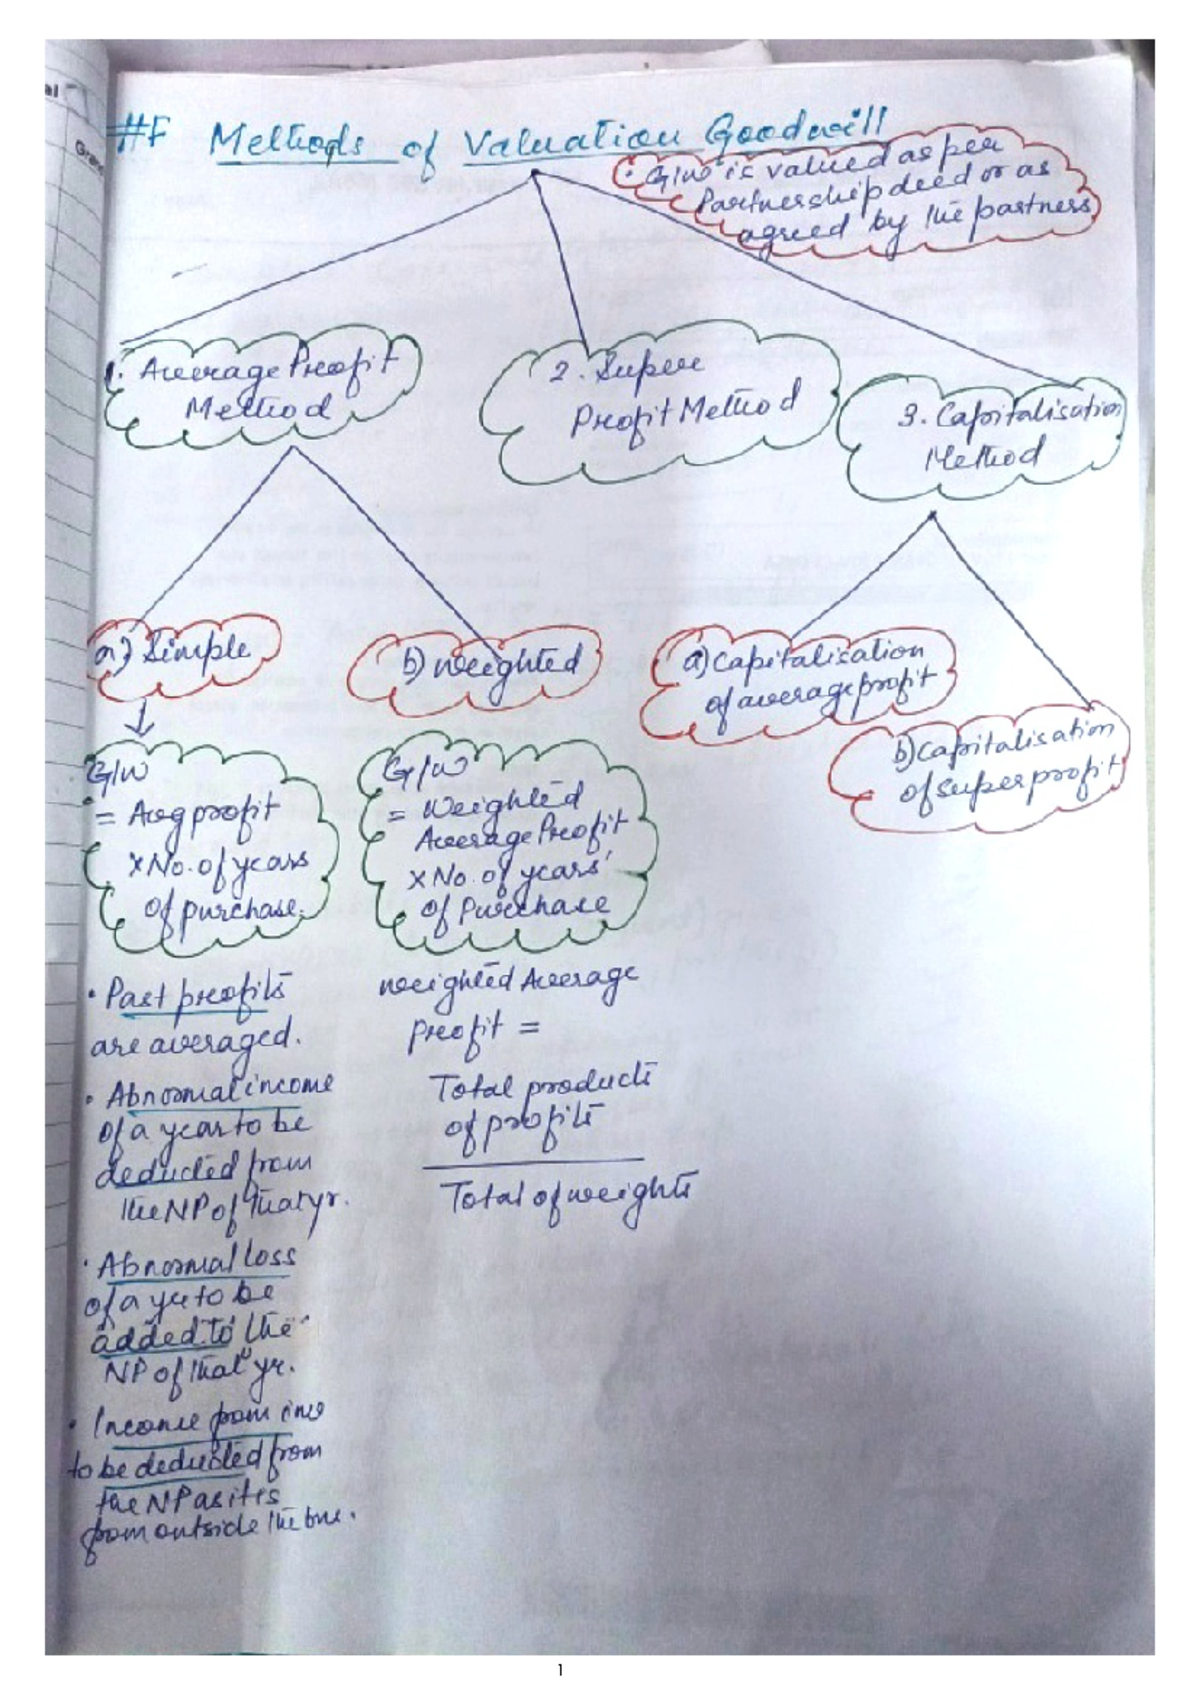 #F Methods of Valuation Goodwill
• G/W is valued as per
Partnership deed or as
agreed by the partners
1. Average Profit
Method
2. Super
Profit Method
3. Capitalisation
Method
a) Simple
b) weighted
a) Capitalisation
of average profit
b) Capitalisation
of super profit
G/W
= Avg profit
x No. of years
of purchase.
G/W
= Weighted
Average Profit
x No. of years'
of Purchase
• Past profits
are averaged.
• Abnormal income
of a year to be
deducted from
the NP of that yr.
• Abnormal loss
of a yr to be
added to the
NP of that yr.
• Income from inv
to be deducted from
the NP as it is
from outside the bus.
weighted Average
Profit =
Total products
of profits
Total of weights
1